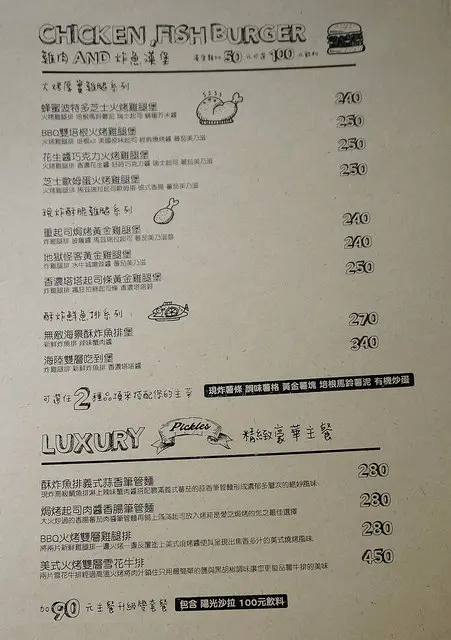 CHICKEN, FISH BURGER
雞肉 AND 炸魚漢堡
50
100
火烤厚實雞腿系列
蜂蜜波特多芝士火烤雞腿堡 240
BBQ雙培根火烤雞腿堡 250
花生醬巧克力火烤雞腿堡 250
芝士歐姆蛋火烤雞腿堡 250
現炸酥脆雞腿系列
重起司焗烤黃金雞腿堡 240
地獄怪客黃金雞腿堡 240
香濃塔塔起司條黃金雞腿堡 250
酥炸鮮魚排系列
無敵海景酥炸魚排堡 270
新鮮炸魚排 辣味蟹肉醬
海陸雙層吃到堡 340
炸雞腿排 新鮮炸魚排 香濃塔塔醬
可選任2種品項來搭配您的主菜
現炸薯條 調味薯格 黃金薯塊 培根馬鈴薯泥 有機炒蛋
LUXURY Pickles 精緻豪華主餐
酥炸魚排義式蒜香筆管麵 280
焗烤起司肉醬香腸筆管麵 280
BBQ火烤雙層雞腿排 280
美式火烤雙層雪花牛排 450
加90元主餐升級雙套餐
包含 陽光沙拉 100元飲料